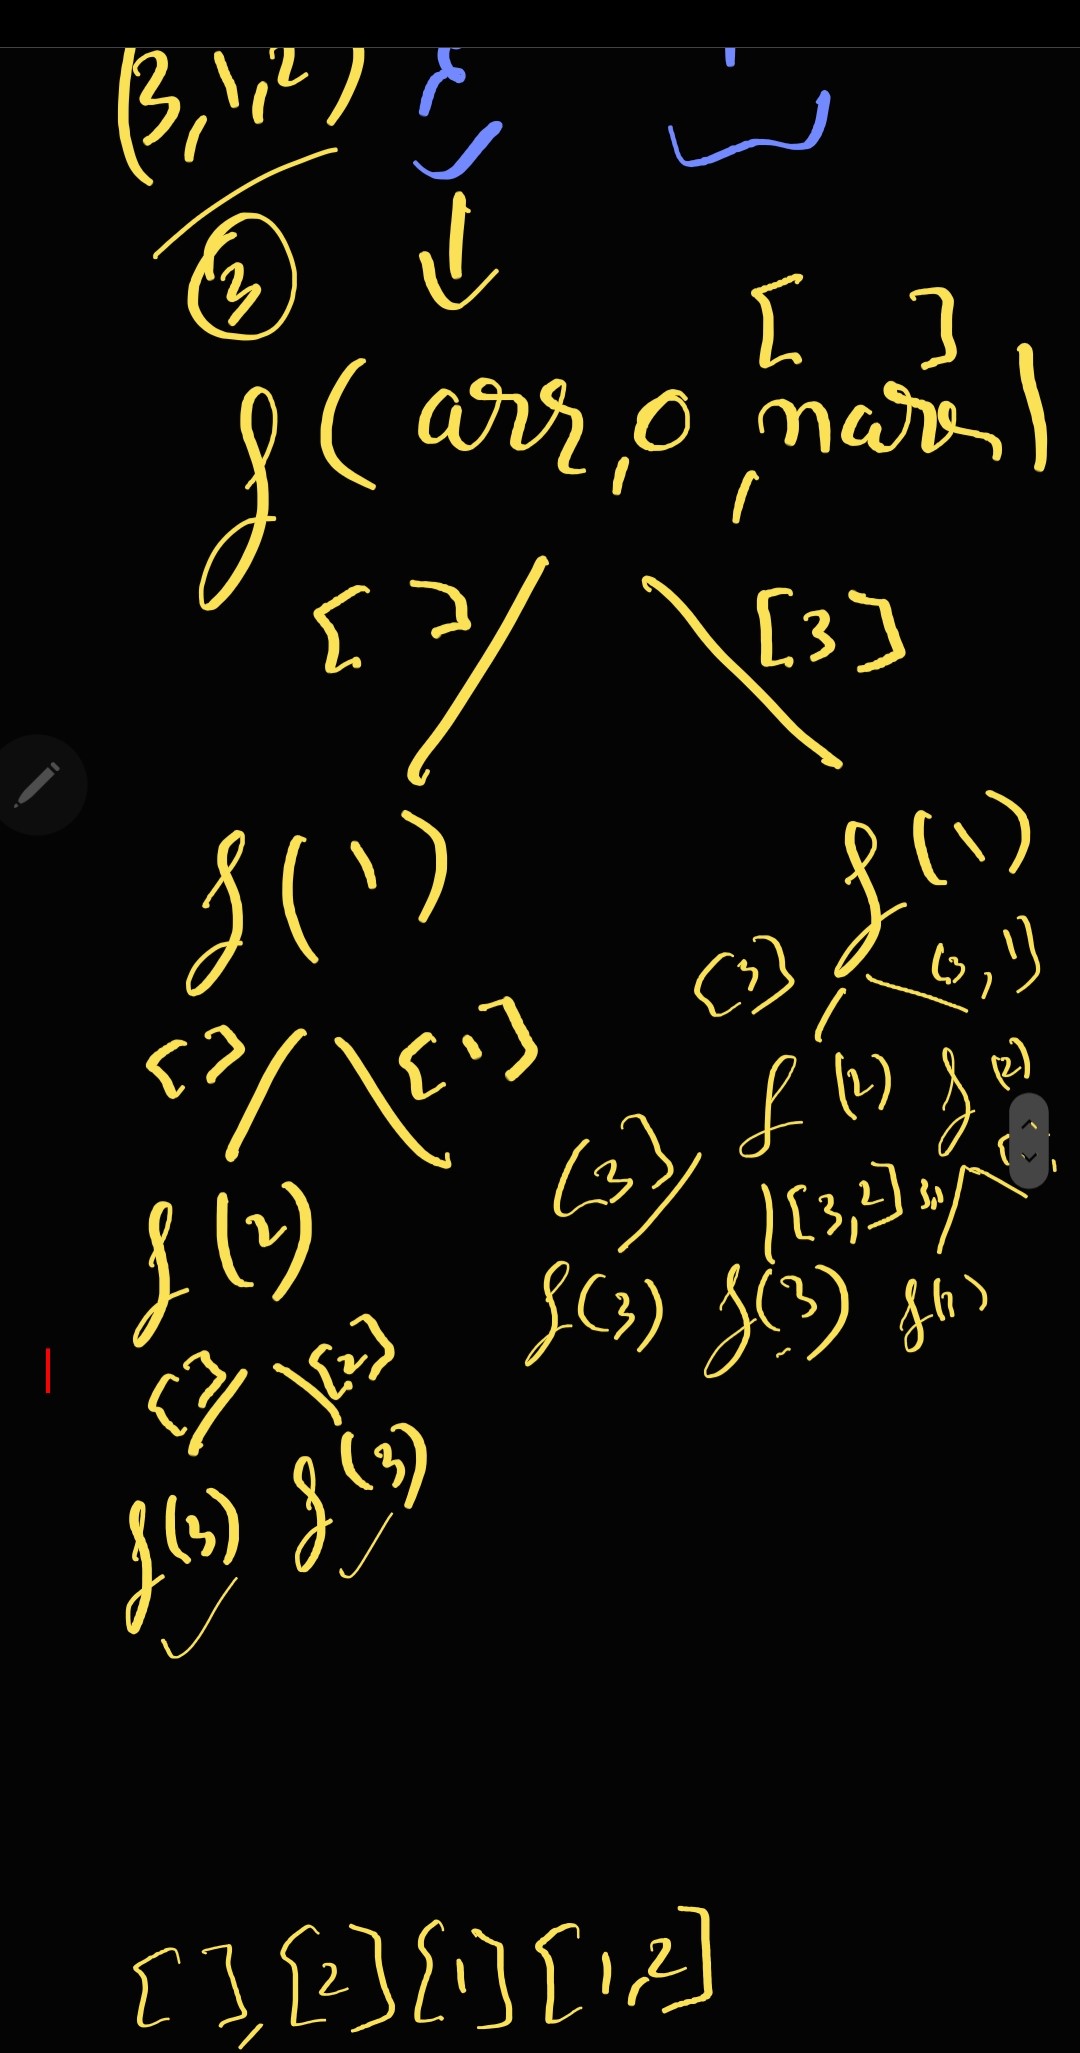 (3,1,2)
3
[ ]
f( arr, 0, narr)
[ ] [3]
f(1) f(1)
[3] (3,1)
[ ] [1]
f(2) f(2)
f(2) [3] [3,2]
f(3) f(3)
[ ] [2]
f(3) f(3)
[ ], [2] [1] [1,2]